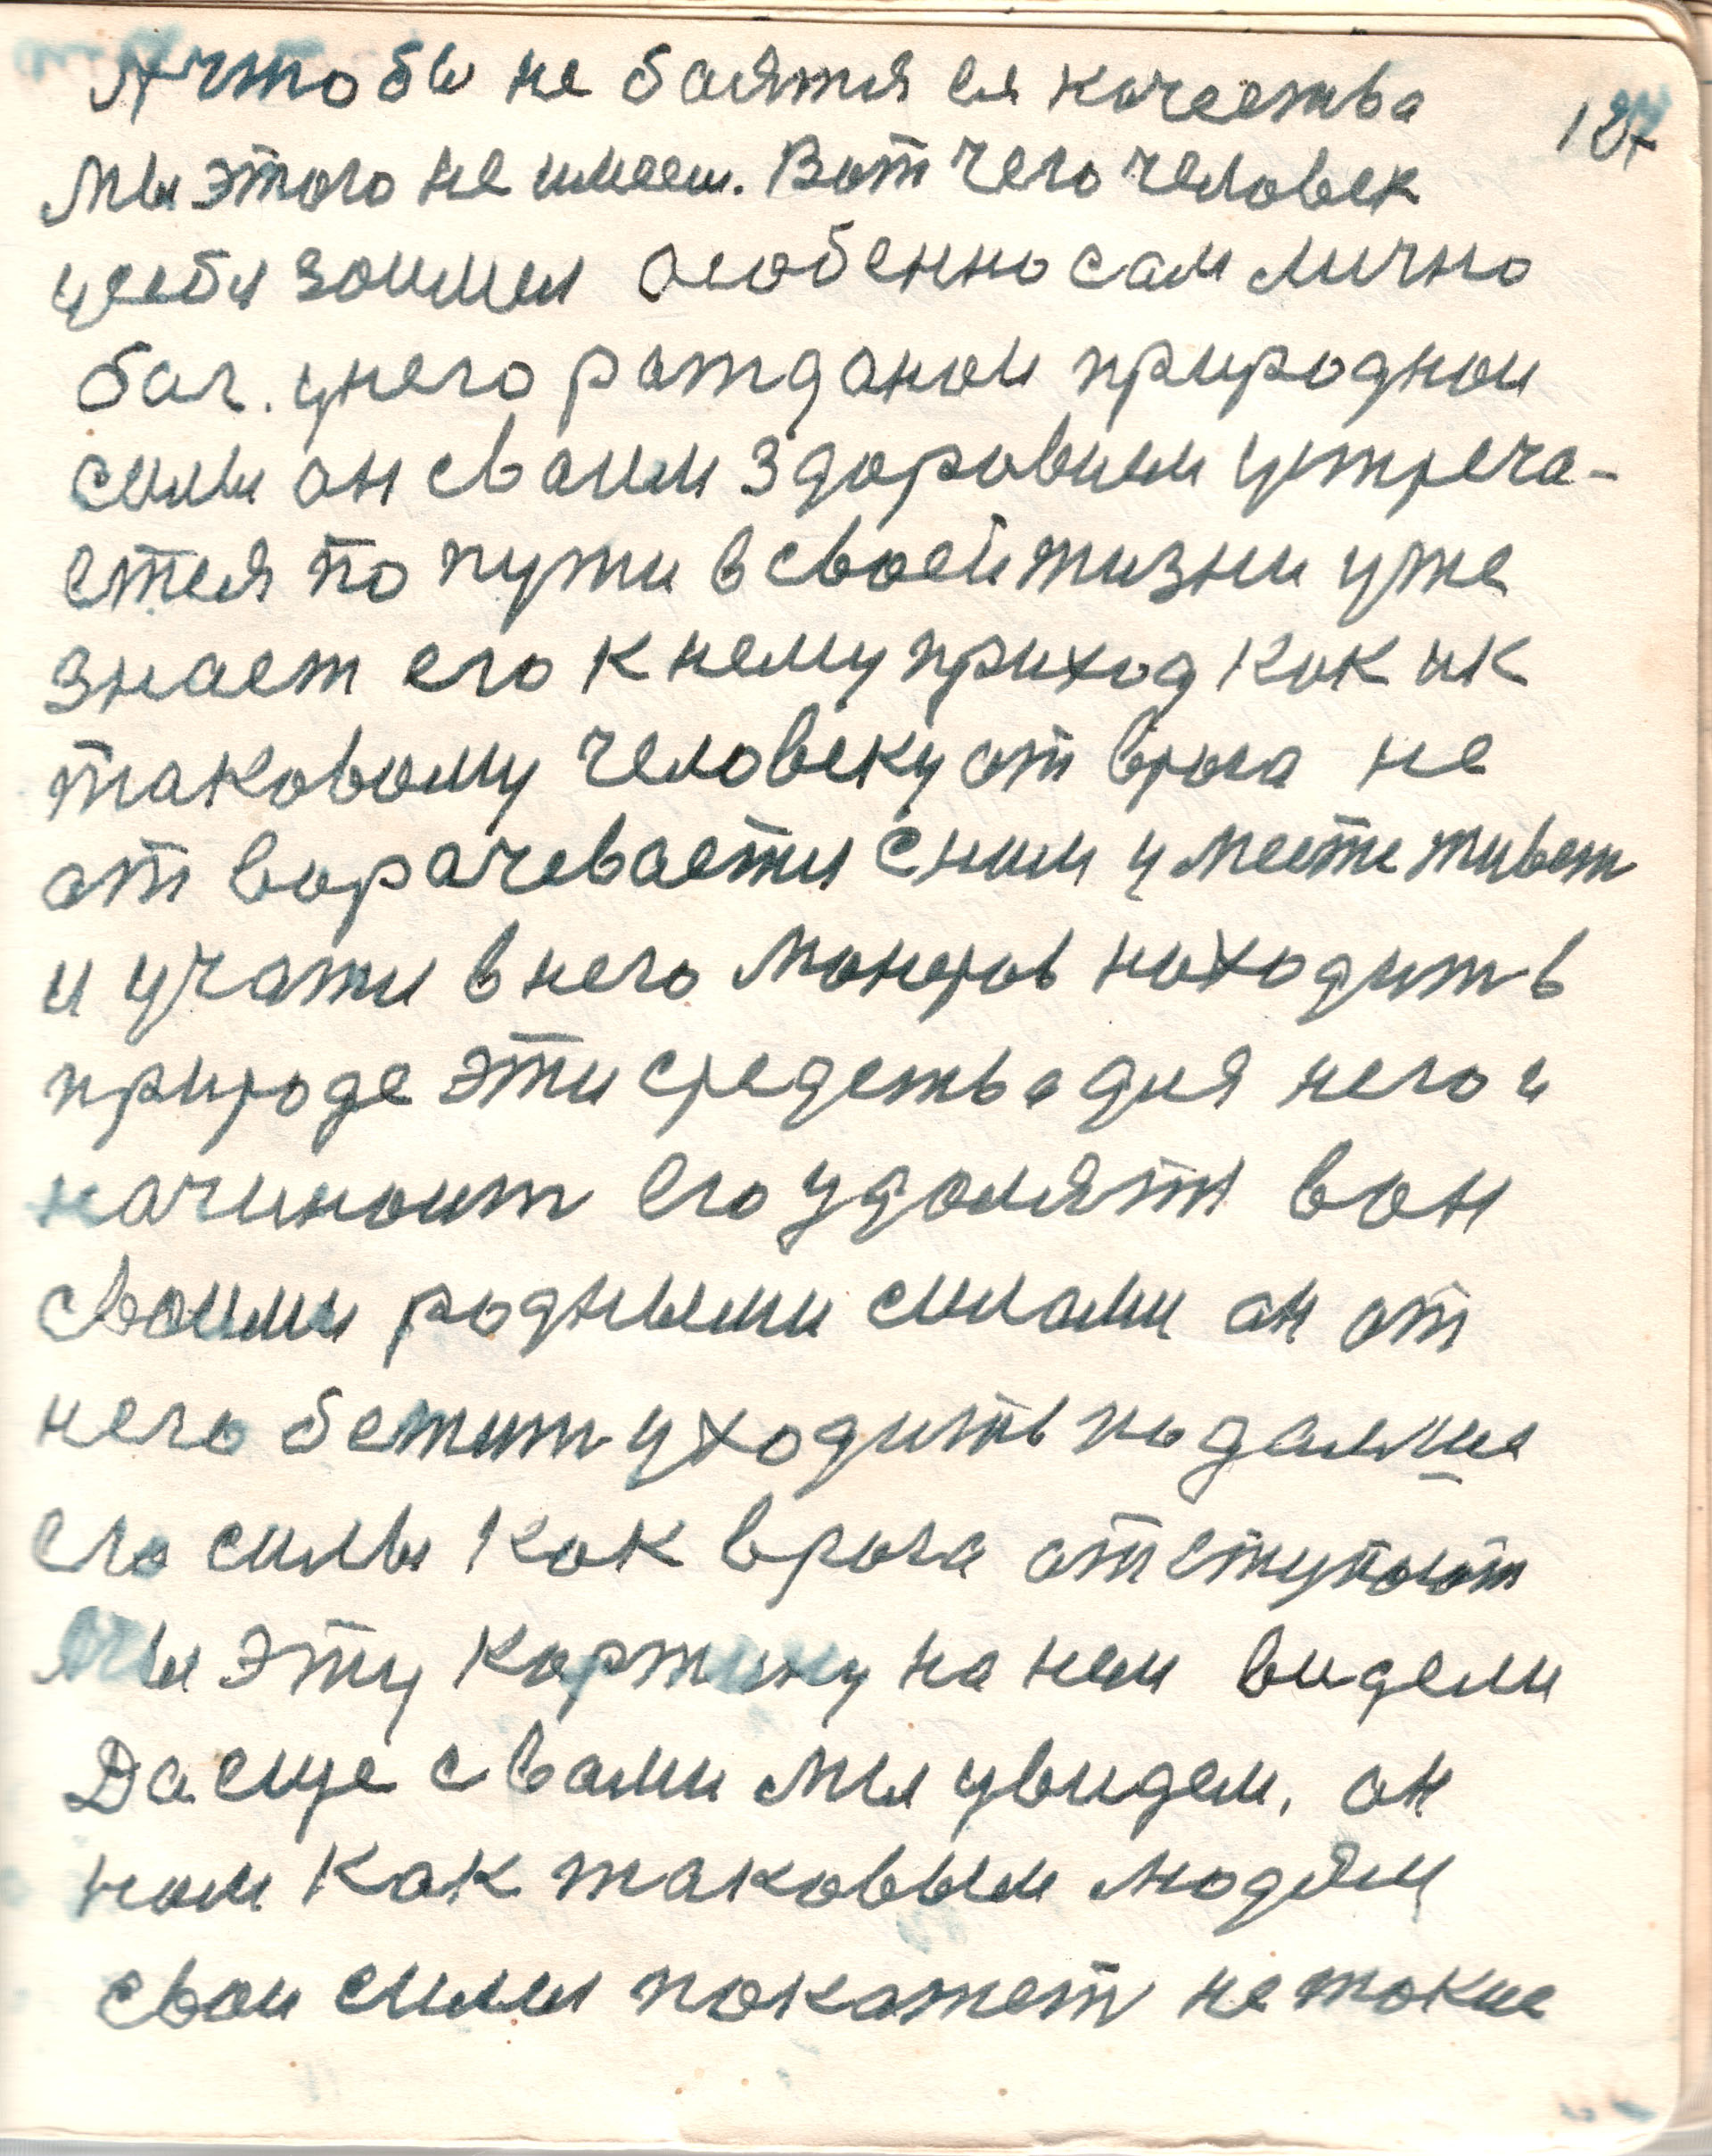 А чтобы не баятся ея качества
187
мы этого не имеем. Вот чего человек
усебя заимел особенно сам лично
бог. унего ражданои природнои
силы он сваим здоровием устреча-
ется по пути в своей жизни уже
знает его к нему приход как ик
таковому человеку от врога не
от ворачевается сним уместе живет
и учажи в него манеров находит в
природе эти средства для него и
начиноит его удолять вон
своими родными силами он от
него бежит уходить подальше
его силы как врога отступоют
Мы эту картину на нем видели
Да еще с вами мы увидем. он
ном как таковым людям
свои силы покажет не токие